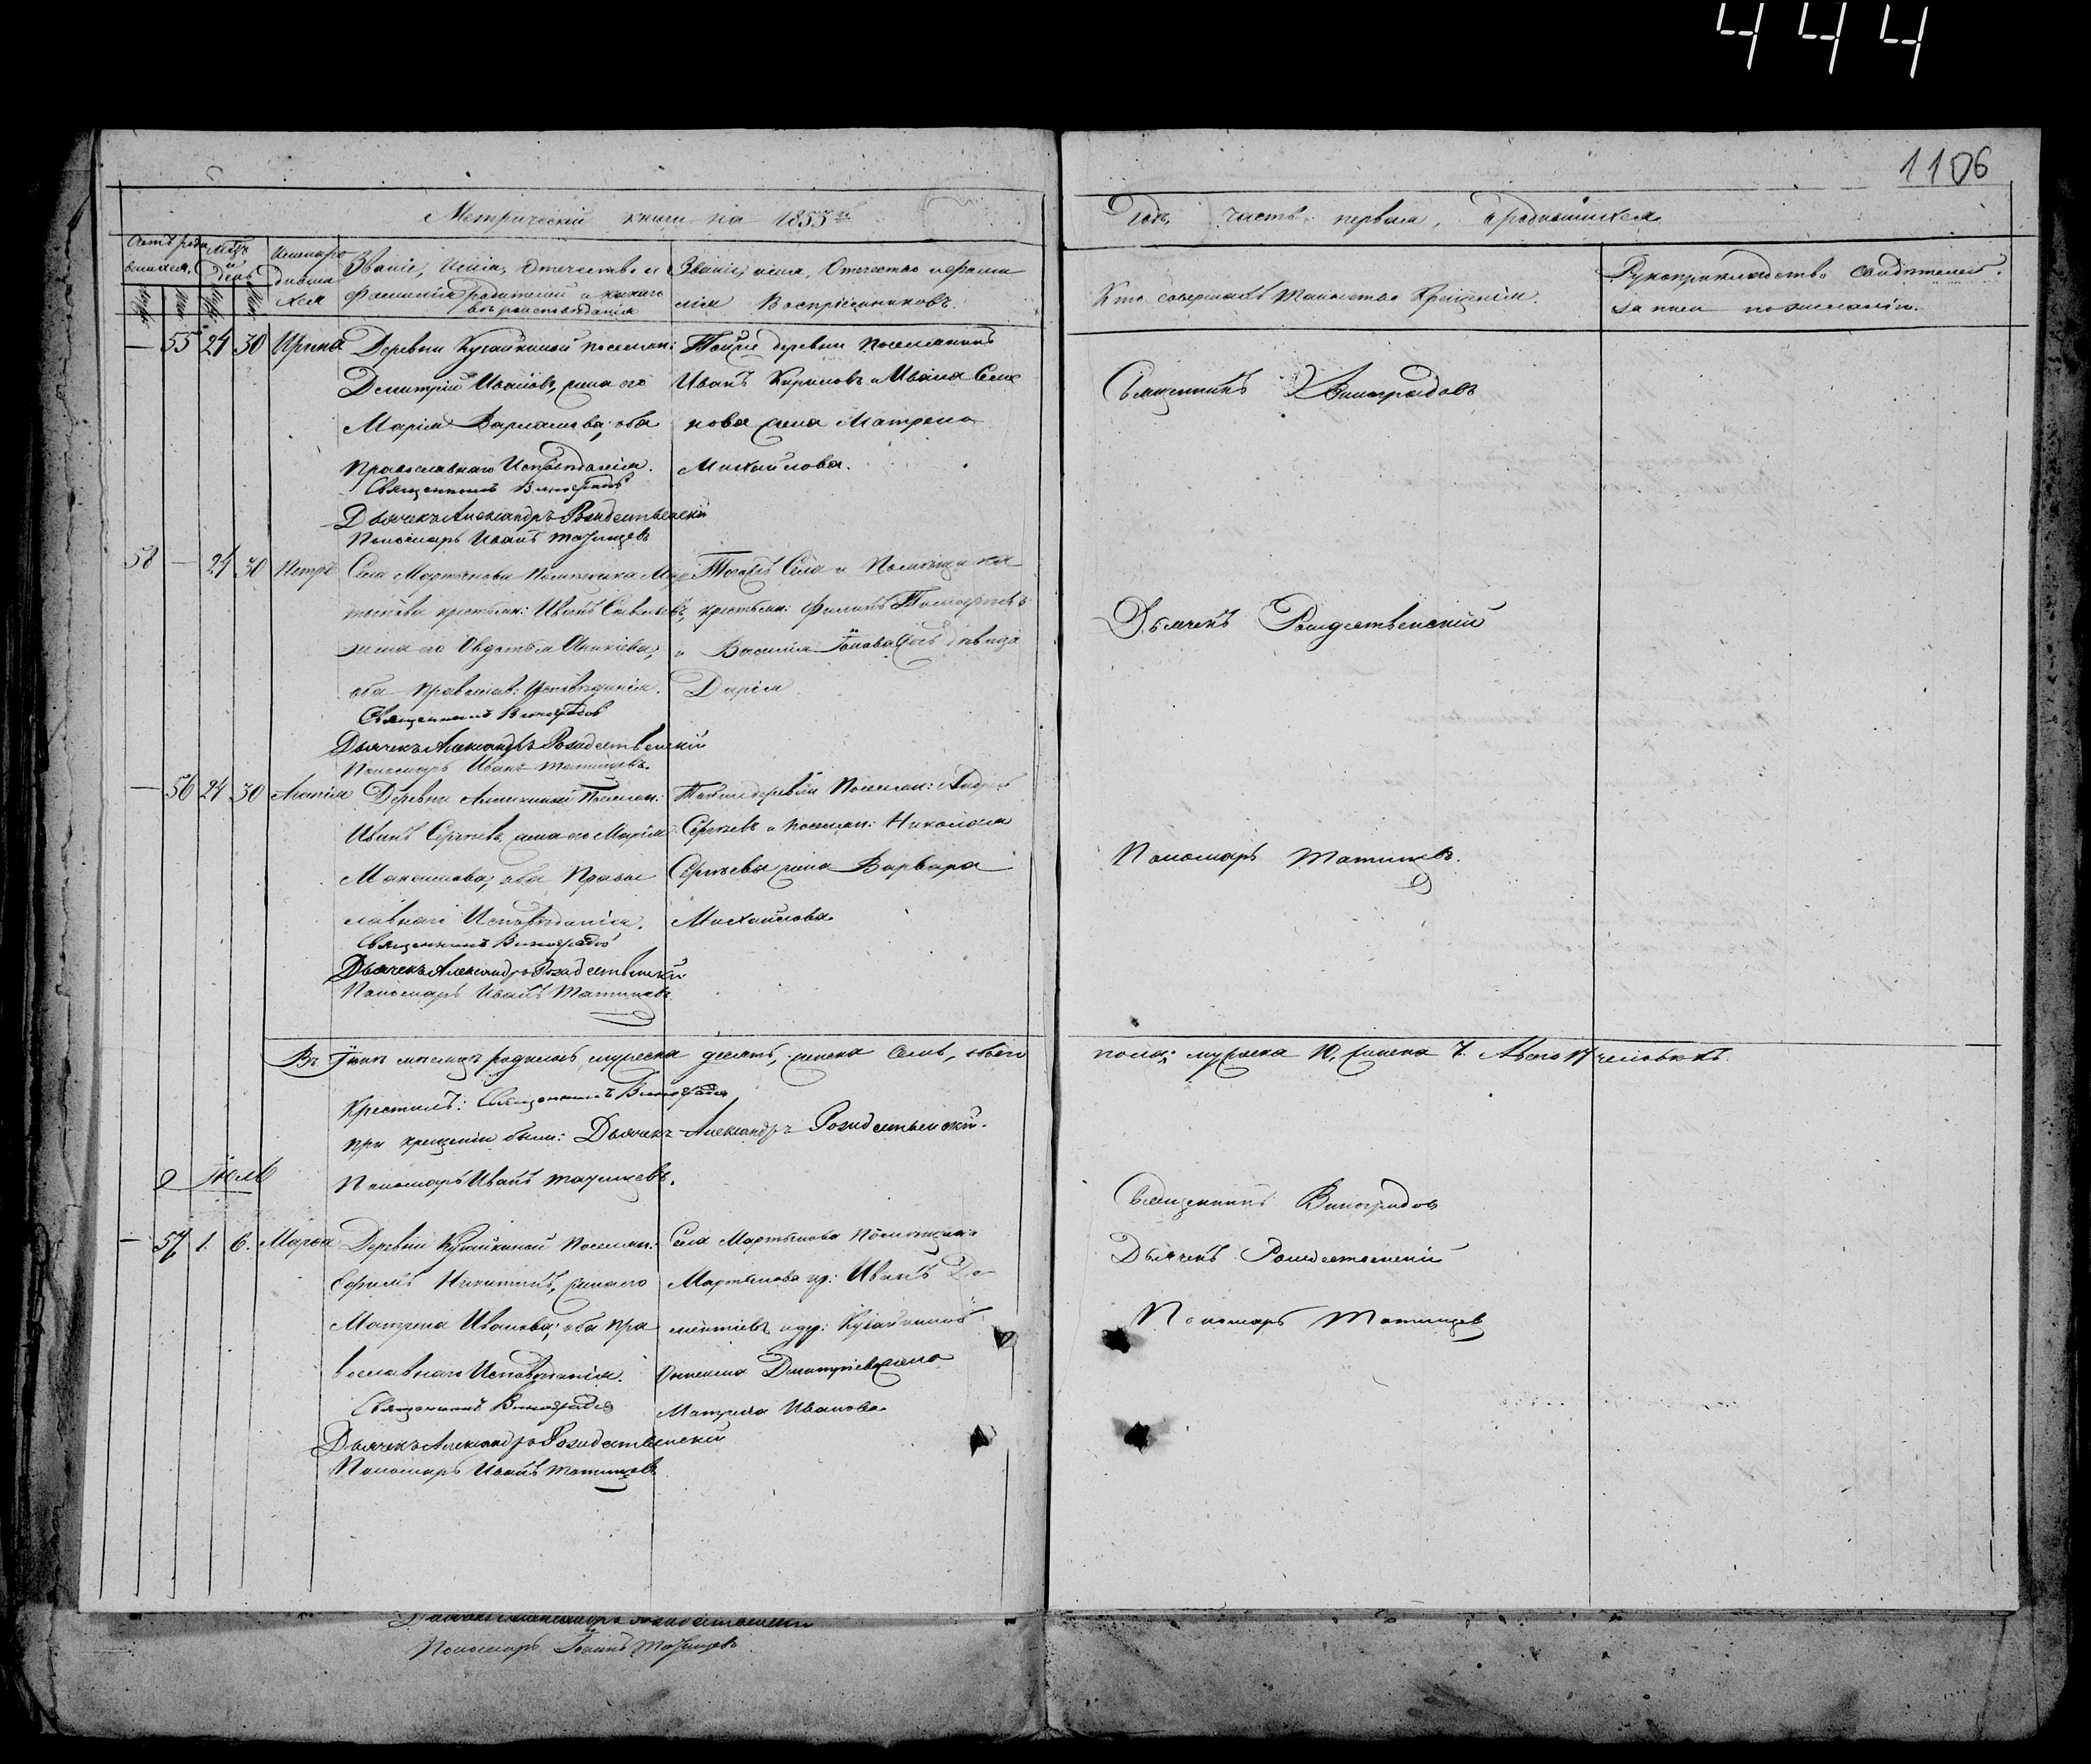 444
1106
Метрической книги на 1855й
Годъ, часть первая, о родившихся
Счетъ родившихся.
Мѣсяцъ и день
Имена родившихся
Званіе, Имя, Отчество и Фамилія родителей и какого вѣроисповѣданія
Званіе, имя, Отчество и фамилія Воспріемниковъ
Кто совершалъ таинство Крещенія.
Рукоприкладство свидѣтелей записи по желанію.
— 55 24 30 Ирина Деревни Кугайкиной поселян:
Димитрій Ивановъ, жена его
Марія Варламова, оба
Православнаго Исповѣданія.
Священникъ Виноградовъ
Дьячекъ Александръ Рождественскій
Пономарь Иванъ Татищевъ
Той же деревни Поселянинъ
Иванъ Кириловъ и Ивана Семе
нова жена Матрена
Михайлова.
Священникъ Виноградовъ
58 — 24 30 Петръ Села Мартынова Помѣщика Мар
тынова крестьян: Иванъ Савельевъ,
жена его Авдотья
оба православ: Исповѣданія.
Священникъ Виноградовъ
Дьячекъ Александръ Рождественскій
Пономарь Иванъ Татищевъ.
Тогожъ Села и Помѣщика
крестьян: Филипъ Тимофѣевъ
и Василія дѣвица
Дарія
Дьячекъ Рождественскій
— 56 24 30 Деревни Поселян:
Иванъ Сергѣевъ, жена его Марія
Максимова, оба Правос
лавнаго Исповѣданія.
Священникъ Виноградовъ
Дьячекъ Александръ Рождественскій
Пономарь Иванъ Татищевъ.
Той же деревни Поселян: Андрей
Сергѣевъ и поселян: Николая
Сергѣева жена Варвара
Михайлова
Пономарь Татищевъ.
Въ Іюнѣ мѣсяцѣ родилось мужеска десять, женска семь, обоего
пола: мужеска 10, женска 7. Всего 17 человѣкъ.
Крестилъ: Священникъ Виноградовъ
при крещеніи были: Дьячекъ Александръ Рождественскій.
Пономарь Иванъ Татищевъ.
Іюль
— 57 1. 6. Марѳа Деревни Кугайкиной Поселян:
Ефимъ Никитинъ, жена его
Матрена Иванова, оба пра
вославнаго Исповѣданія.
Священникъ Виноградовъ
Дьячекъ Александръ Рождественскій
Пономарь Иванъ Татищевъ
Села Мартынова Помѣщика
Мартынова кр: Иванъ Де-
ментіевъ и дер: Кугайкиной
Дмитріева жена
Матрена Иванова.
Священникъ Виноградовъ
Дьячекъ Рождественскій
Пономарь Татищевъ
Дьячекъ Александръ Рождественскій
Пономарь Іоаннъ Татищевъ